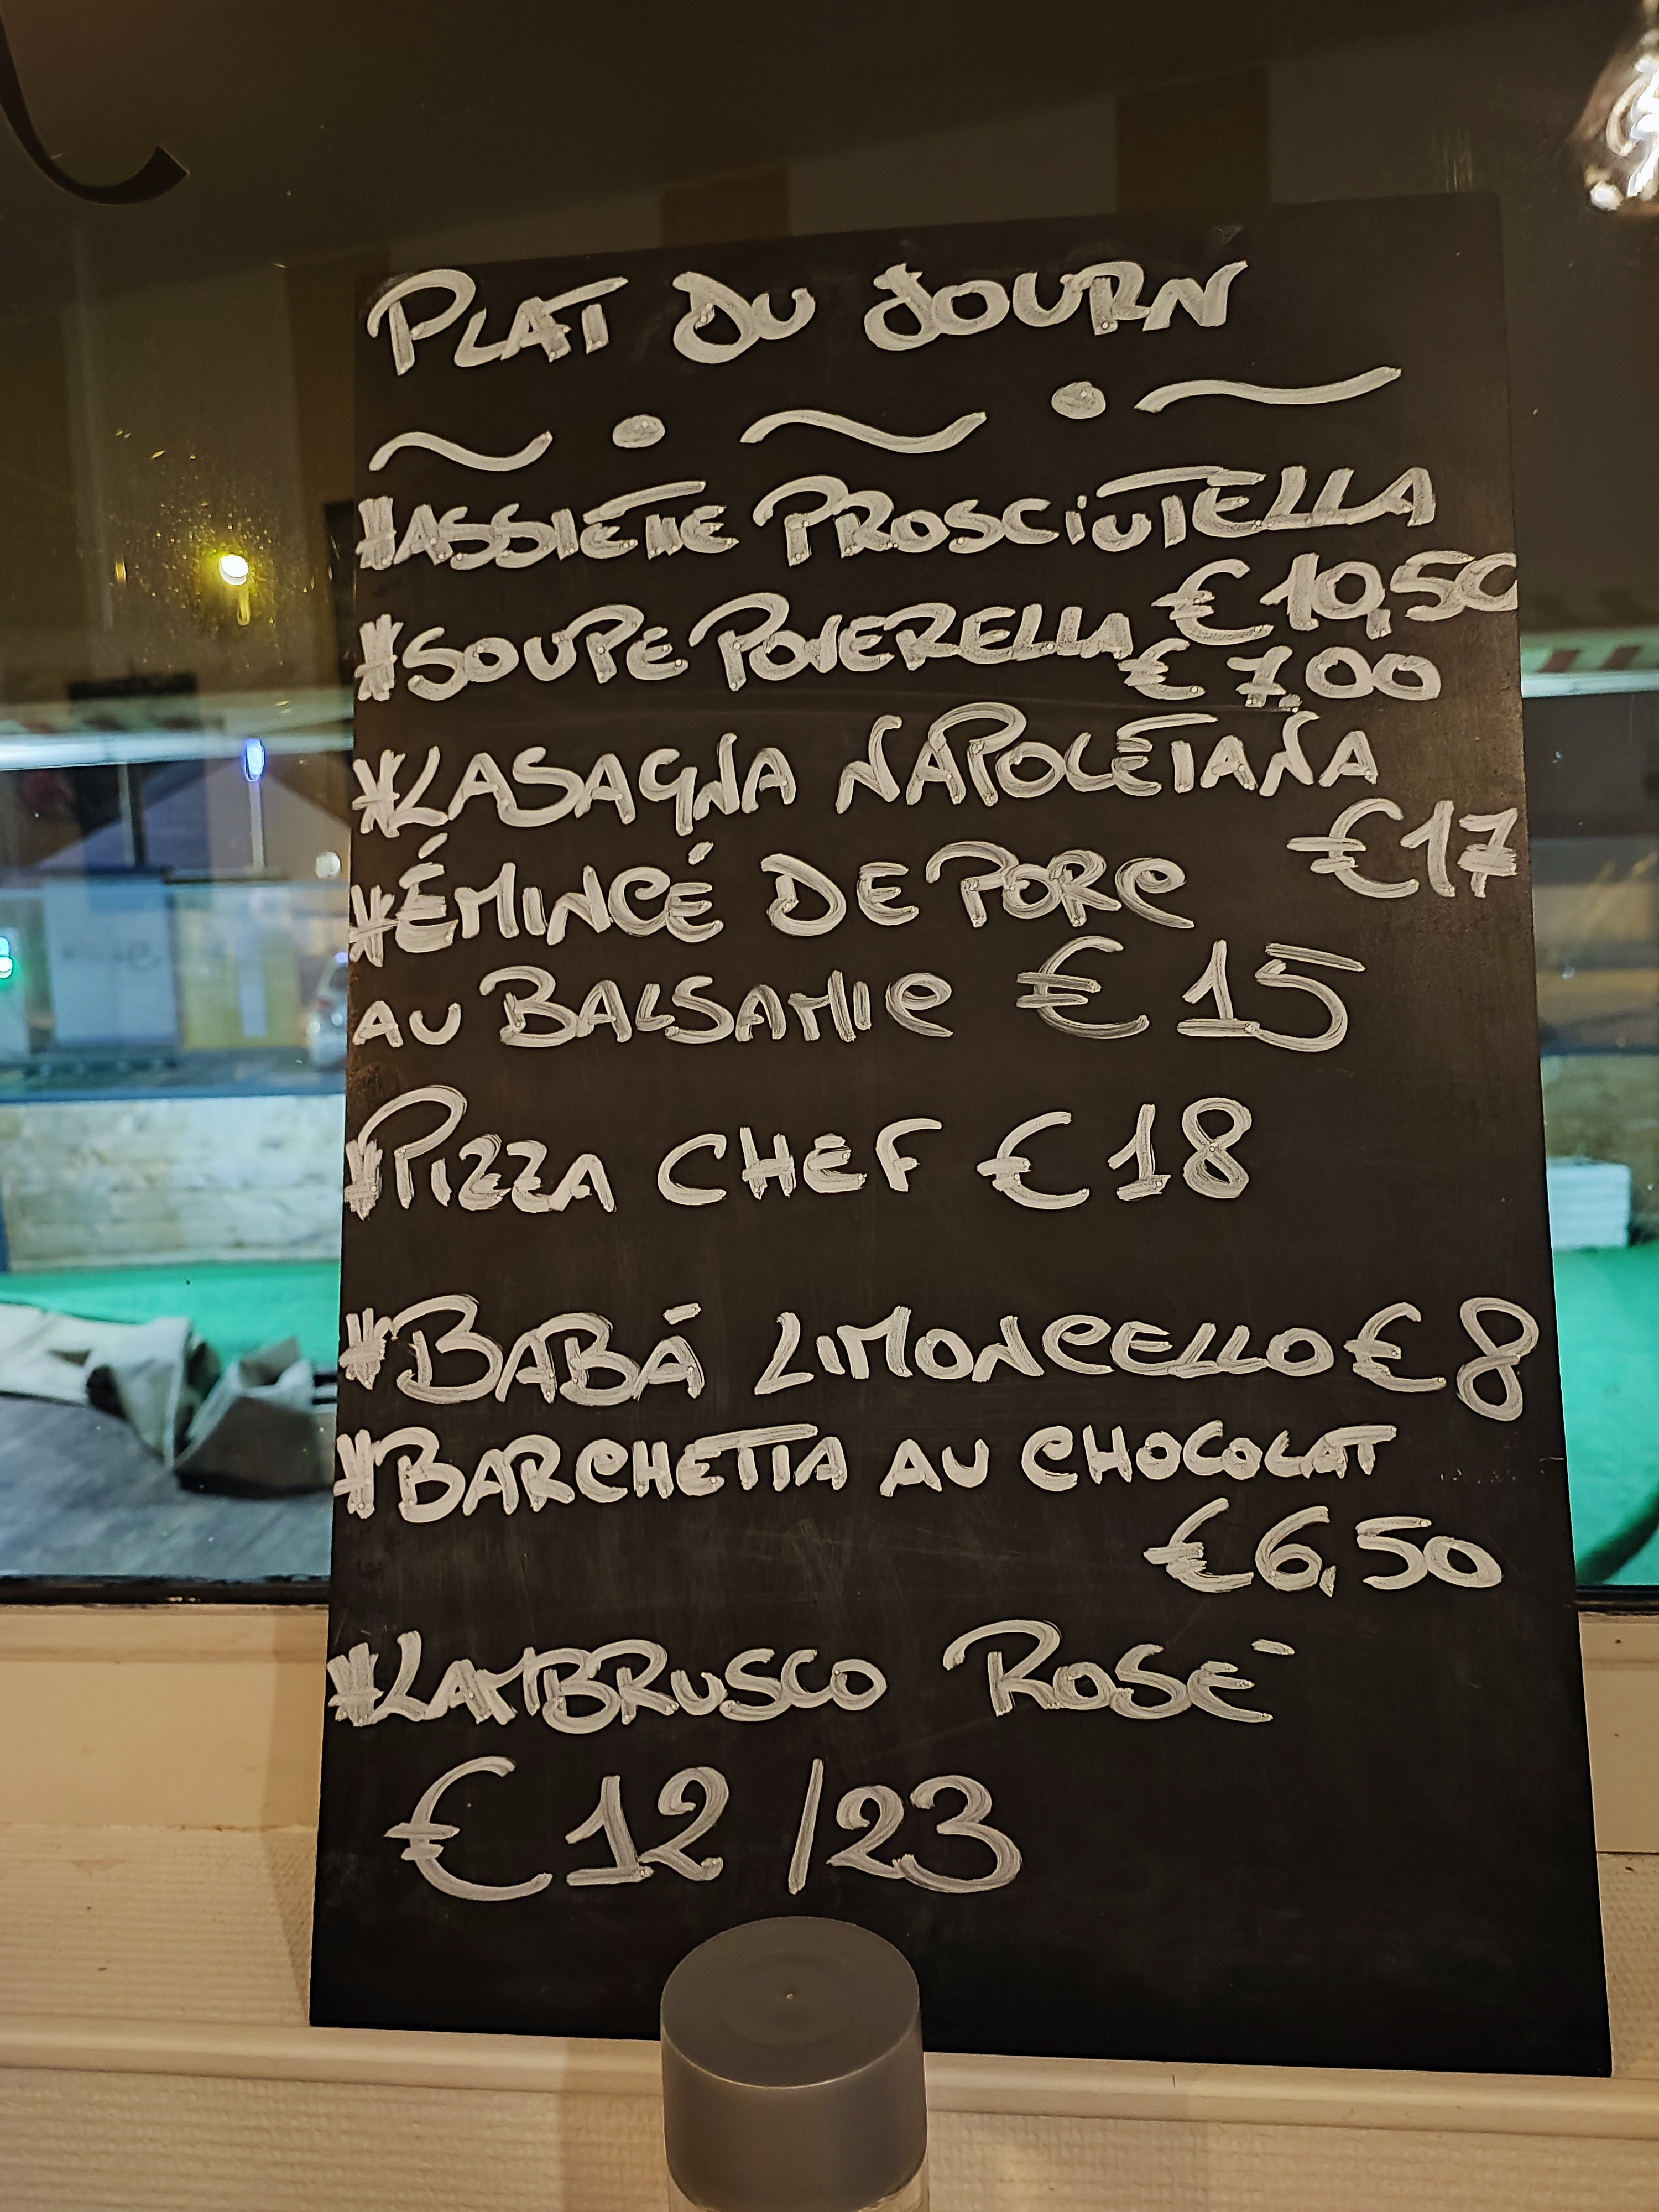 PLAT DU JOURN
#ASSIETTE PROSCIUTELLA
€ 10,50
#SOUPE POVERELLA € 7,00
#LASAGNA NAPOLETANA
€ 17
#ÉMINCÉ DE PORC
AU BALSAMIC € 15
#PIZZA CHEF € 18
#BABÁ LIMONCELLO € 8
#BARCHETTA AU CHOCOLAT
€ 6,50
#LAMBRUSCO ROSÉ
€ 12 / 23